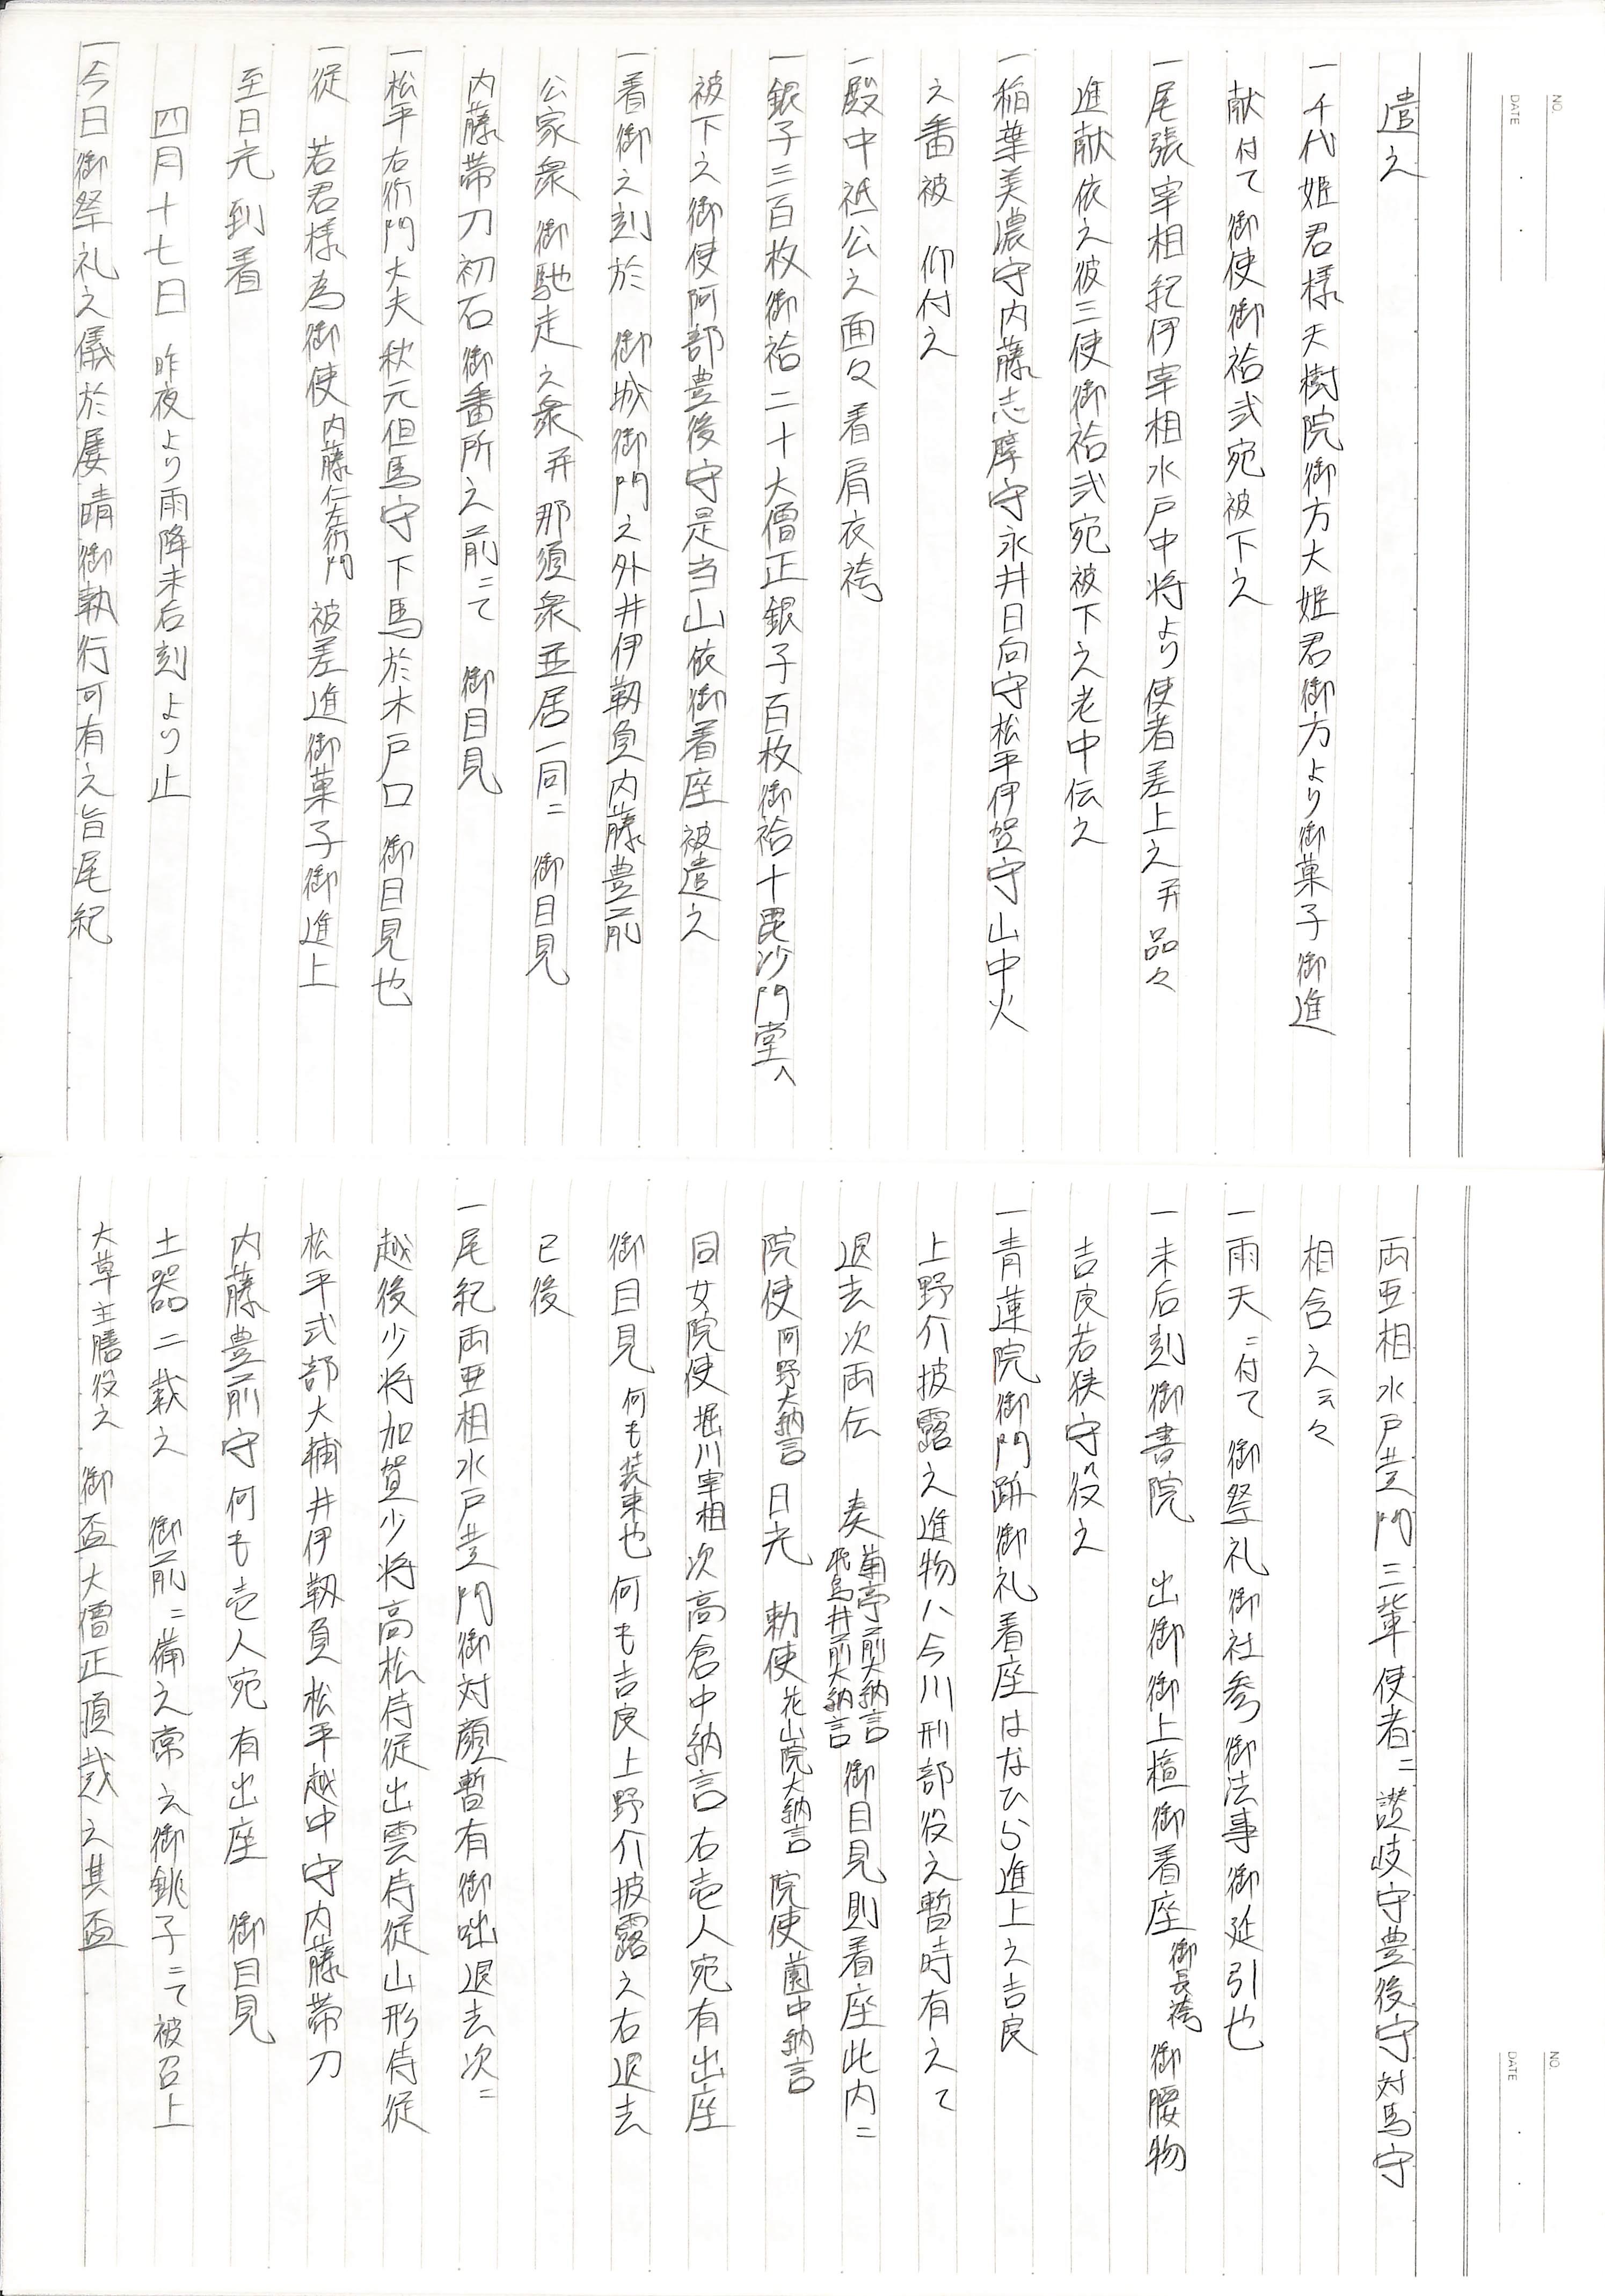 NO.
DATE
遣之
一千代姫君様天樹院御方大姫君御方より御菓子御進
献付て御使御袷弐宛被下之
一尾張宰相紀伊宰相水戸中将より使者差上之并品々
進献依之彼三使御袷弐宛被下之老中伝之
一稲葉美濃守内藤志摩守永井日向守松平伊賀守山中火
之番被 仰付之
一殿中祗公之面々着肩衣袴
一銀子三百枚御袷二十大僧正銀子百枚御袷十毘沙門堂へ
被下之御使阿部豊後守是当山依御着座被遣之
一着御之刻於 御城御門之外井伊靱負内藤豊前
公家衆御馳走之衆并那須衆並居一同ニ 御目見
内藤帯刀初石御番所之前ニて 御目見
一松平右衛門大夫秋元但馬守下馬於木戸口 御目見也
一従 若君様為御使 内藤仁左衛門 被差進御菓子御進上
至日光到着
四月十七日 昨夜より雨降未后刻より止
一今日御祭礼之儀於屢晴御執行可有之旨尾紀
NO.
DATE
両亜相水戸黄門三輩使者ニ讃岐守豊後守対馬守
相含之云々
一雨天ニ付て 御祭礼御社参御法事御延引也
一未后刻御書院 出御御上檀御着座 御長袴 御腰物
吉良若狭守役之
一青蓮院御門跡御礼着座はなひら進上之吉良
上野介披露之進物ハ今川刑部役之暫時有之て
退去次両伝 奏 菊亭前大納言 飛鳥井前大納言 御目見則着座此内ニ
院使 阿野大納言 日光 勅使 花山院大納言 院使 薗中納言
同女院使 堀川宰相 次高倉中納言右壱人宛有出座
御目見 何も装束也 何も吉良上野介披露之右退去
已後
一尾紀両亜相水戸黄門御対顔暫有御咄退去次ニ
越後少将加賀少将高松侍従出雲侍従山形侍従
松平式部大輔井伊靱負松平越中守内藤帯刀
内藤豊前守何も壱人宛有出座 御目見
土器二載之 御前ニ備之常之御銚子ニて被召上
大草主膳役之 御盃大僧正頂戴之其盃